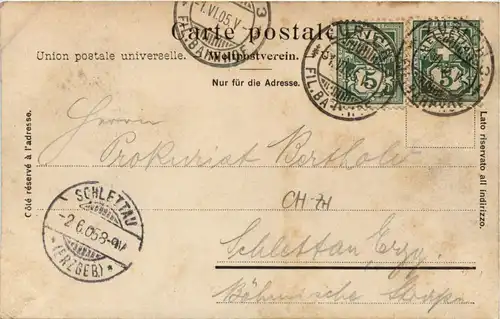 Carte postale
Union postale universelle. Weltpostverein.
Nur für die Adresse.
-1.VI.05.V
3
FIL. BAHNHOF
5 5
Côté réservé à l'adresse.
Lato riservato all indirizzo.
Herrn
Prokurist
CH-ZH
SCHLETTAU
-2.6.05.8-9V.
*(ERZGEB.)*
Schlettau, Erzg.
Böhmische Straße